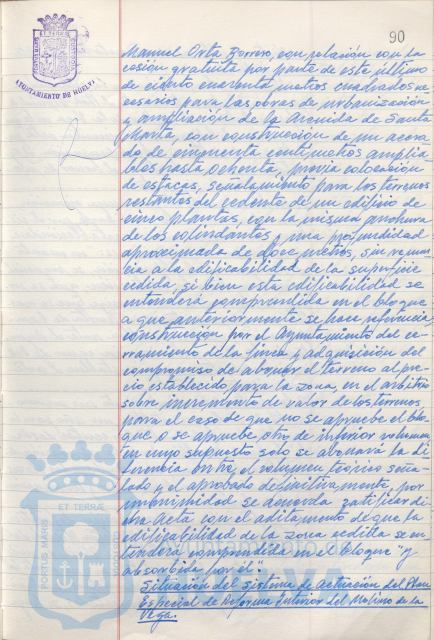 90
AYUNTAMIENTO DE HUELVA
Manuel Orta Borrero, con relación con la
cesión gratuita por parte de este último
de ciento cuarenta metros cuadrados ne-
cesarios para las obras de urbanización
y ampliación de la Avenida de Santa
Marta, con construcción de un acera-
do de cincuenta centímetros amplia-
bles hasta ochenta, previa colocación
de estacas, señalamiento para los terrenos
restantes del cedente de un edificio de
cinco plantas, con la misma anchura
de los colindantes y una profundidad
aproximada de doce metros, sin renun-
cia a la edificabilidad de la superficie
cedida, si bien esta edificabilidad se
entenderá comprendida en el bloque
a que anteriormente se hace referencia,
construcción por el Ayuntamiento del ce-
rramiento de la finca y adquisición del
compromiso de abonar el terreno al pre-
cio establecido para la zona, en el arbitrio
sobre incremento de valor de los terrenos
para el caso de que no se apruebe el blo-
que o se apruebe otro de inferior volumen
en cuyo supuesto solo se abonará la di-
ferencia entre el volumen teórico seña-
lado y el aprobado definitivamente, por
unanimidad se acuerda ratificar di-
cha Acta con el aditamento de que la
edificabilidad de la zona cedida se en-
tenderá comprendida en el bloque "y
absorbida por él".
Situación del sistema de actuación del Plan
Especial de Reforma Interior del Molino de la
Vega.
PORTUS MARIS ET TERRAE